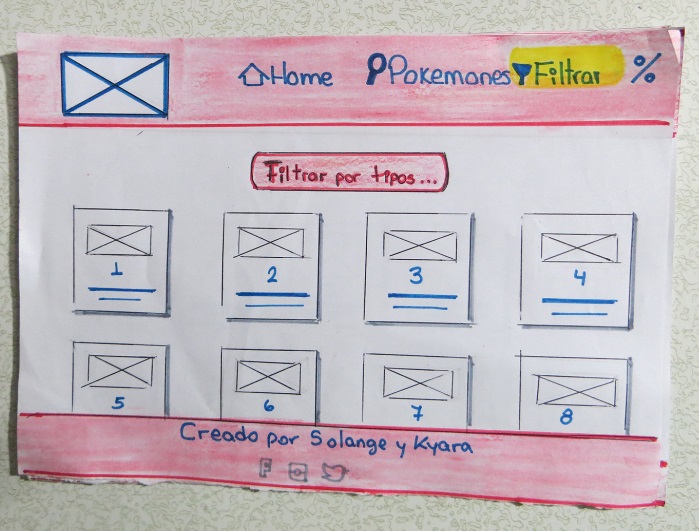 Home Pokemones Filtrar %
Filtrar por tipos...
1 2 3 4
5 6 7 8
Creado por Solange y Kyara